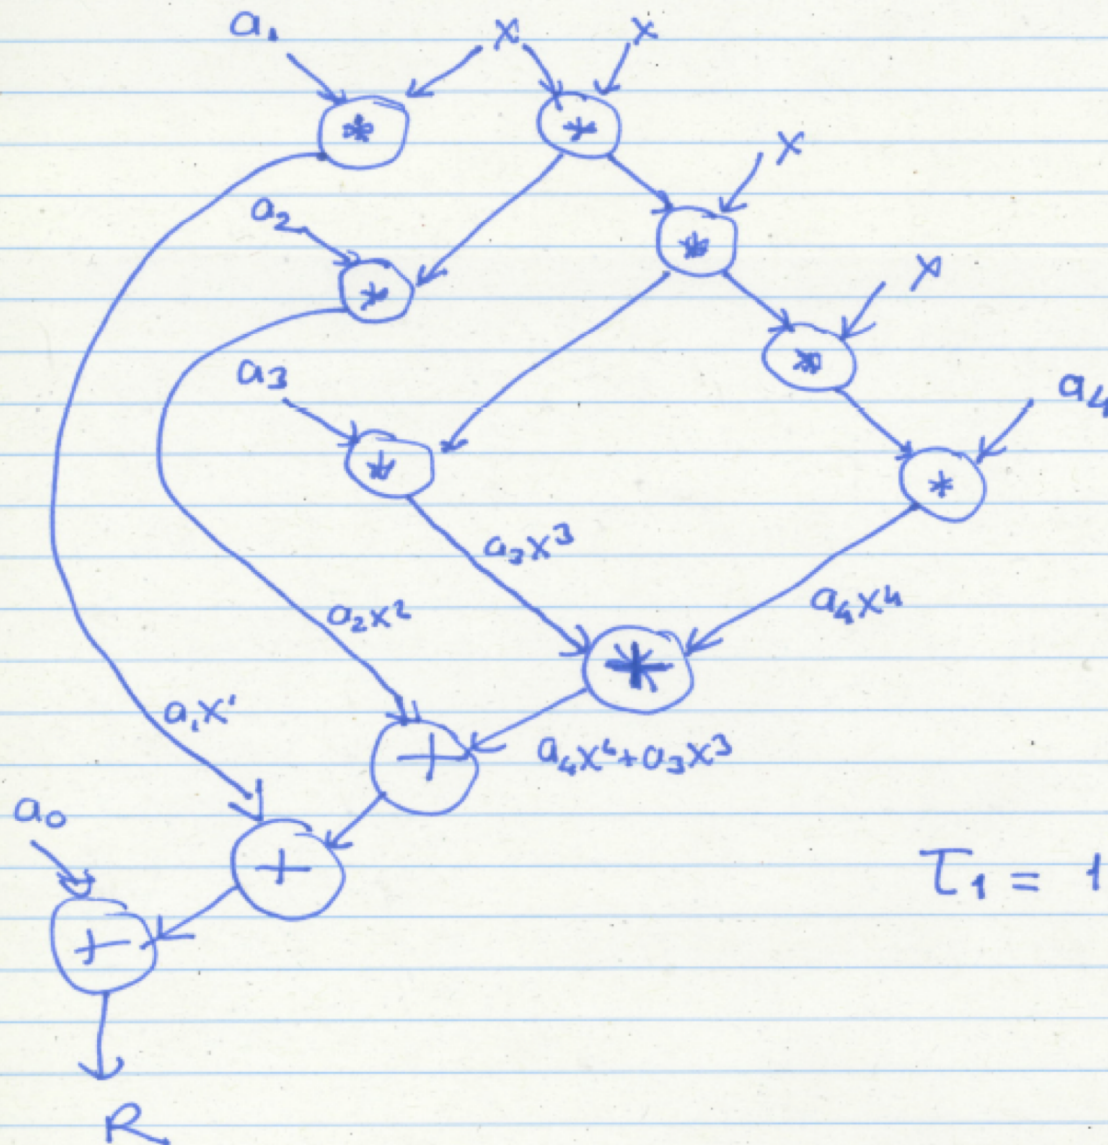 a₁ x x
* *
x
a₂ *
* x
a₃ *
a₄
* *
a₃x³
a₂x² a₄x⁴
*
a₁x¹
+ a₄x⁴+a₃x³
a₀
+ τ₁ = 1
+
R